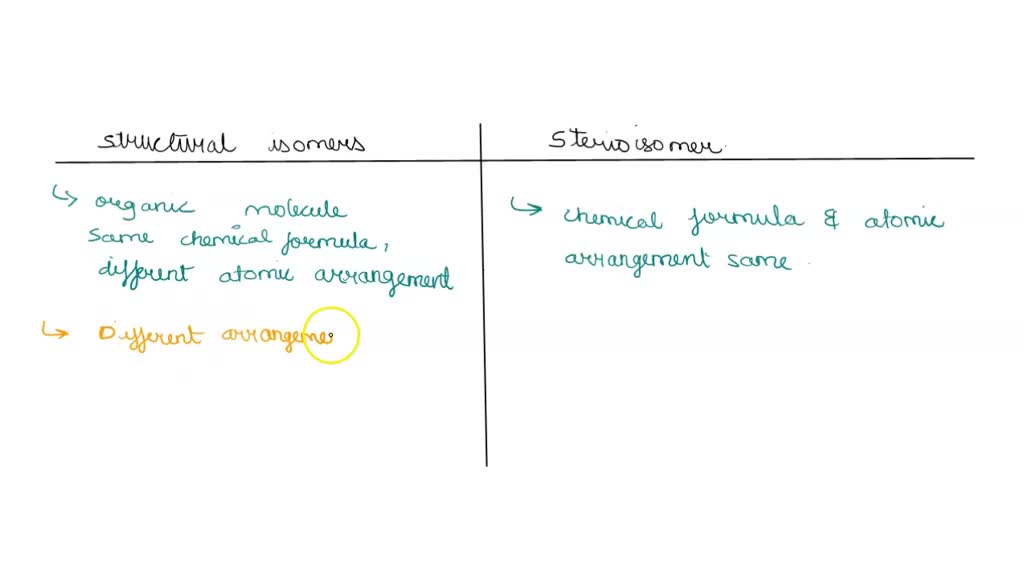 structural isomers
Sterioisomer.
↳ organic molecule
same chemical formula,
different atomic arrangement
↳ chemical formula & atomic
arrangement same.
↳ Different arrangeme